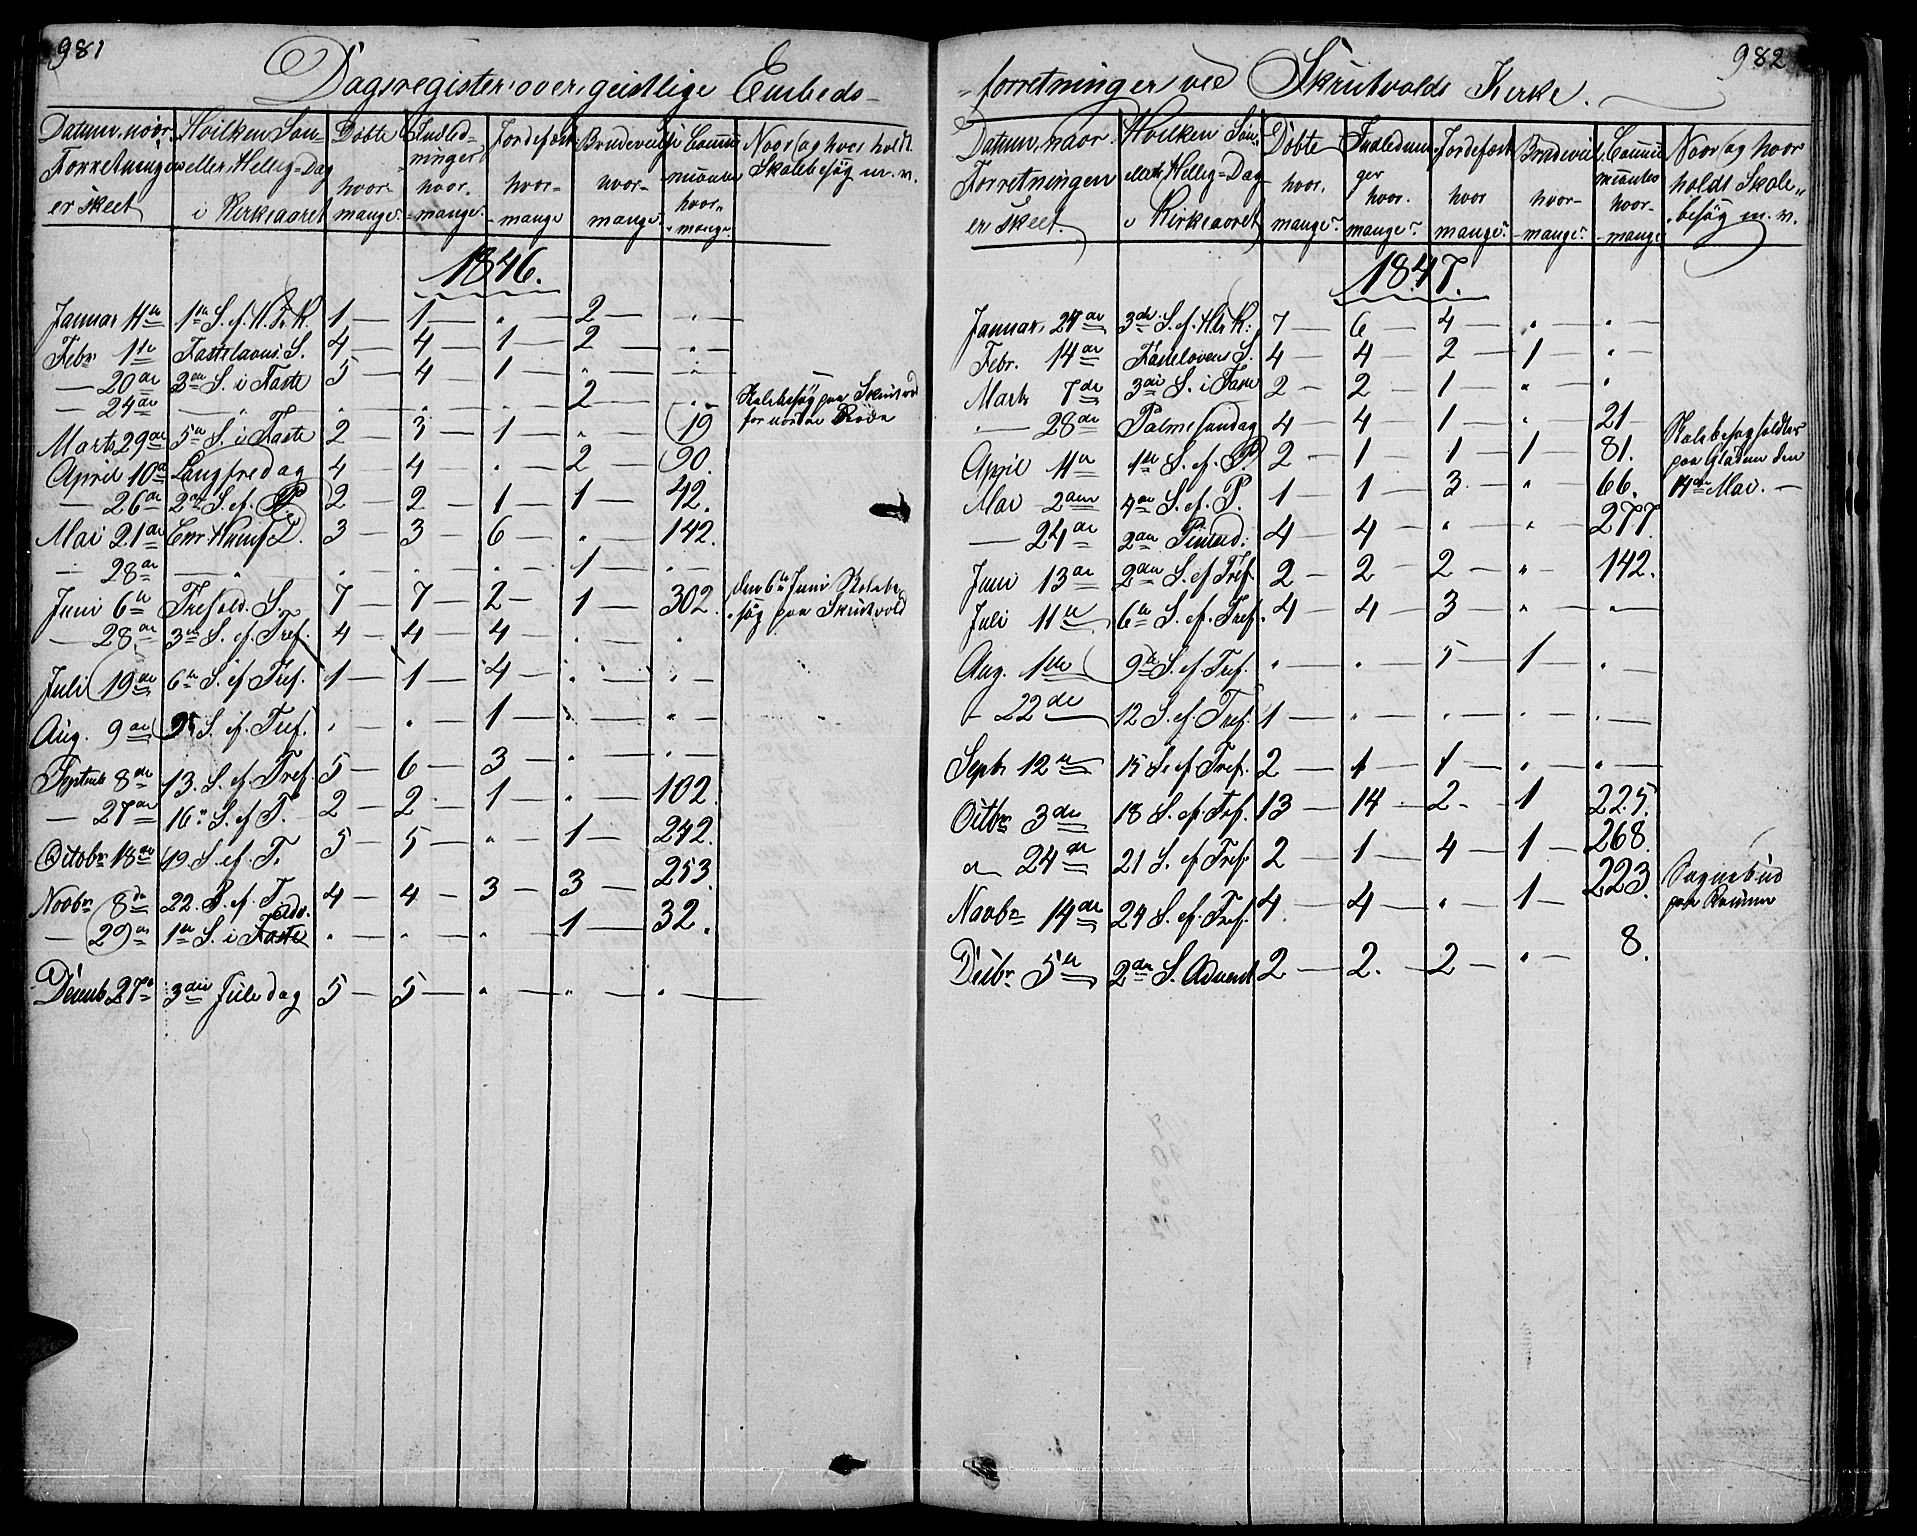 981
Dagsregister over geistlige Embeds-
Datum, naar Hvilken Søn- Døbte Indled- Jordefæst Brudevielse Commu Naar og hvor holdt
Forretningen eller Hellig=Dag hvor- ninger hvor- hvor- nicanter Skolebesøg m. v.
er skeet i Kirkeaaret mange. hvor- mange mange. hvor-
mange. mange.
1846.
Januar 11te 1te S. ef. H. 3 K. 1 — 1 — " — 2 — " —
Febr. 1te Fastelavns. S. 4 — 4 — 1 — 2 — " —
— 20de 3die S. i Faste 5 — 4 — 1 — " — " —
— 24de — " — " — " — " — 2 — " — Skolebesøg paa Skrutvold
for nordre Rode
Marts 29de 5te S. i Faste 2 — 3 — 1 — " — 19
April 10de Langfredag 4 — 4 — " — 2 — 90.
— 26de 2den S. ef. P. 2 — 2 — 1 — 1 — 42.
Mai 21de Chr. Himfd. 3 — 3 — 6 — " — 142.
— 28de — " — " — " — " — 1 — " —
Juni 6te Trefold. S. 7 — 7 — 2 — 1 — 302. den 6te Juni Skolebe
søg paa Skrutvold
— 28de 3die S. ef. Tref. 4 — 4 — 4 — " — "
Juli 19de 6te S. ef. Tref. 1 — 1 — 4 — " — " —
Aug. 9de 9. S. ef. Tref. " — " — 1 — " — " —
Septemb 8de 13. S. ef. Tref. 5 — 6 — 3 — " — " —
— 27de 16. S. ef. T. 2 — 2 — 1 — " — 102.
Octobr 18de 19 S. ef. T. 5 — 5 — " — 1 — 242.
Novbr 8de 22. S. ef. T. 4 — 4 — 3 — 3 — 253.
— 29de 1te S. i Faste Adv. " — " — " — 1 — 32.
Decemb 27de 3die Juledag 5 — 5 — " — " — " —
982
-forretninger ved Skrutvolds Kirke.
Datum, naar Hvilken Søn- Døbte Indlednin- Jordefæst Brudeviel. Commu Naar og hvor
Forretningen eller Hellig=Dag hvor- ger hvor hvor- nicanter holdt Skole-
er skeet. i Kirkeaaret mange. hvor- mange. mange. hvor- besøg m. v.
mange. mange
1847.
Januar 24de 3die S. ef. H. 3 K. 7 — 6 — 4 — " — " —
Febr. 14de Fastelavens S. 4 — 4 — 2 — 1 — " —
Marts 7de 3die S. i Faste 2 — 2 — 1 — " — "
— 28de Palmesøndag 4 — 4 — 1 — " — 21 —
April 11te 1te S. ef. P. 2 — 1 — 1 — 1 — 81. Skolebesøg holdtes
paa Glæden den
14de Mai. —
Mai 2den 4de S. ef. P. 1 — 1 — 3 — " — 66.
— 24de 2den Pintsd. 4 — 4 — " — " — 277.
Juni 13de 2den S. ef. Tref. 2 — 2 — 2 — " — 142.
Juli 11te 6te S. ef. Tref. 4 — 4 — 3 — " — " —
Aug. 1te 9de S. ef. Tref. " — " — 5 — 1 — " —
— 22de 12 S. ef. Tref. 1 — " — " — " — " —
Septr 12te 15 S. ef. Tref. 2 — 1 — 1 — " — " —
Octbr 3die 18 S. ef. Tref. 13 — 14 — 2 — 1 225.
" 24de 21 S. ef. Tref. 2 — 1 — 4 — 1 — 268.
Novbr 14de 24 S. ef. Tref. 4 — 4 — " — 1 — 223. Sognebud
paa Rømmen
Decbr 5te 2den S. Advent 2 — 2. — 2 — " — 8.